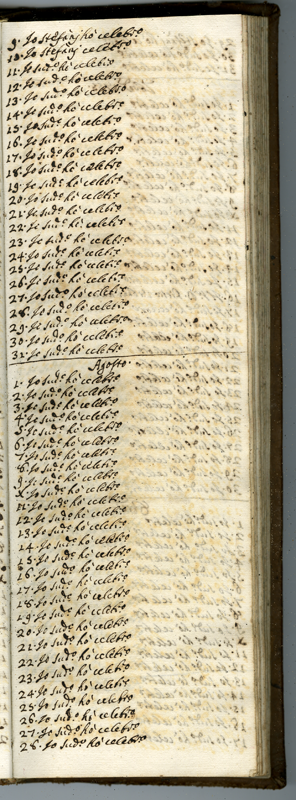 9. Io stefanj hò celebto
10. Io stefanj celebto
11. Io sudo hò celebto
12. Io sudo hò celebto
13. Io sudo hò celebto
14. Io sudo hò celebto
15. Io sudo hò celebto
16. Io sudo hò celebto
17. Io sudo hò celebto
18. Io sudo hò celebto
19. Io sudo hò celebto
20. Io sudo hò celebto
21. Io sudo hò celebto
22. Io sudo hò celebto
23. Io sudo hò celebto
24. Io sudo hò celebto
25. Io sudo hò celebto
26. Io sudo hò celebto
27. Io sudo hò celebto
28. Io sudo hò celebto
29. Io sudo hò celebto
30. Io sudo hò celebto
31. Io sudo hò celebto
Agosto
1. Io sudo hò celebto
2. Io sudo hò celebto
3. Io sudo hò celebto
4. Io sudo hò celebto
5. Io sudo hò celebto
6. Io sudo hò celebto
7. Io sudo hò celebto
8. Io sudo hò celebto
9. Io sudo hò celebto
Io sudo hò celebto
11. Io sudo hò celebto
12. Io sudo hò celebto
13. Io sudo hò celebto
14. Io sudo hò celebto
15. Io sudo hò celebto
16. Io sudo hò celebto
17. Io sudo hò celebto
18. Io sudo hò celebto
19. Io sudo hò celebto
20. Io sudo hò celebto
21. Io sudo hò celebto
22. Io sudo hò celebto
23. Io sudo hò celebto
24. Io sudo hò celebto
25. Io sudo hò celebto
26. Io sudo hò celebto
27. Io sudo hò celebto
28. Io sudo hò celebto